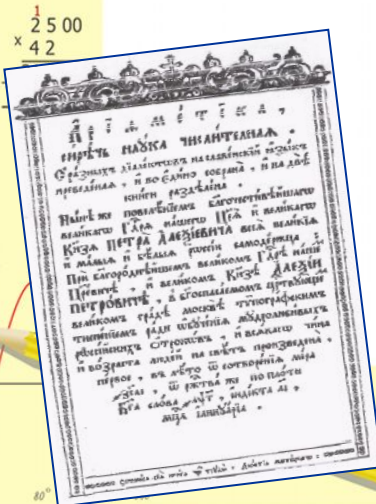 1
2500
x 42
Арїѳметїка,
сирѣчь наука числителная.
Съ разныхъ дїалектѡвъ на славенскїй языкъ
преведеная, и во едино собрана, и на двѣ
книги раздѣлена.
Нынѣ же повелѣнїемъ благочестивѣйшагѡ
великагѡ Гдря нашегѡ Цря и великагѡ
Кнзя ПЕТРА АЛЕѮЇЕВИЧА всея великїя
и малыя и бѣлыя рѡссїи самодержца:
При благороднѣйшемъ великомъ Гдрѣ нашемъ
Црвичѣ, и великомъ Кнзѣ АЛЕѮЇИ
ПЕТРОВИЧѢ, в бгоспасаемомъ цртвующемъ
великомъ градѣ москвѣ тѷпографскимъ
тисненїемъ ради ѡбученїя мудролюбивыхъ
рѡссїйскихъ отрокѡвъ, и всякагѡ чина
и возраста людей на свѣтъ произведена,
первое, въ лѣто ѿ сотворенїя мїра
҂зсаі, ѿ ржтва же по плоти
Бга слова ҂аѱг, індікта аі,
мца іаннуарїа.
сїѧ книга
80°